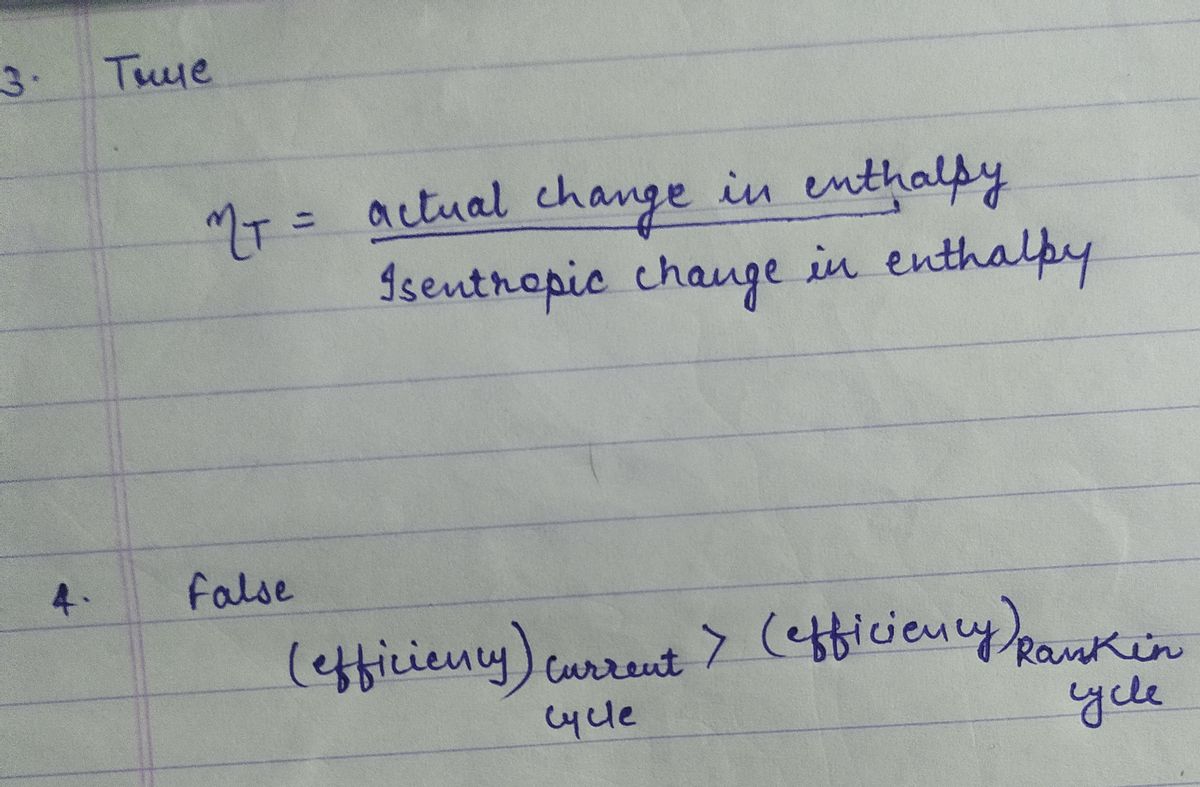 3. True
η_T = actual change in enthalpy
Isentropic change in enthalpy
4. False
(efficiency) current > (efficiency) Rankin
cycle cycle